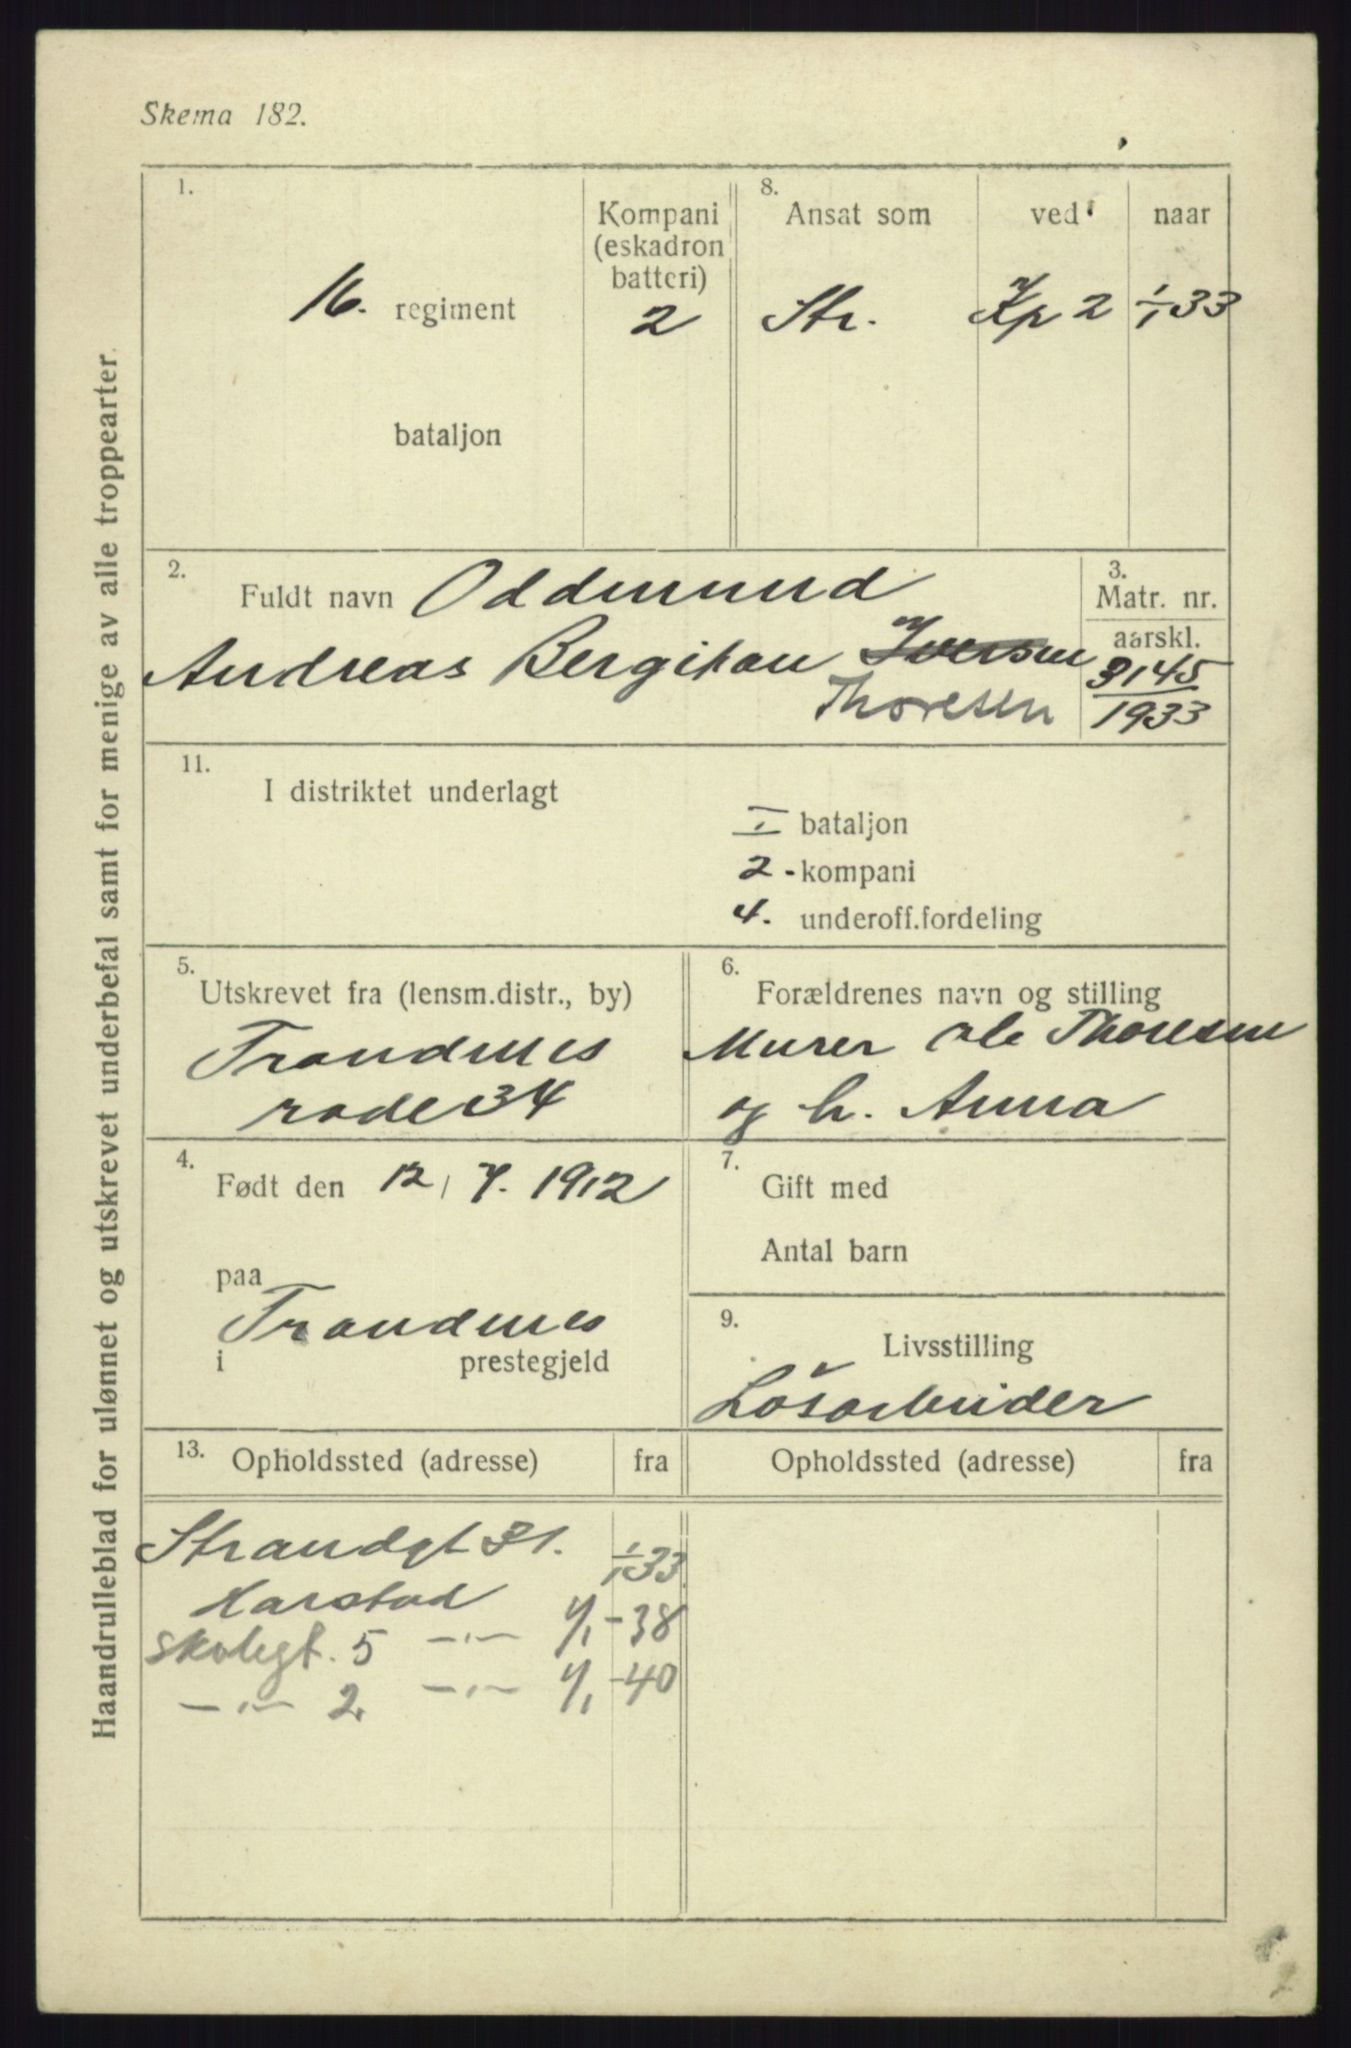 Skema 182.
Haandrulleblad for ulønnet og utskrevet underbefal samt for menige av alle troppearter.
1.
16. regiment
bataljon
Kompani
(eskadron
batteri)
2
8.
Ansat som
ved
naar
Str.
Kp 2
1/1 33
2.
Fuldt navn Oddmund
Andreas Bergiton Iversen
Thoresen
3.
Matr. nr.
aarskl.
3145
1933
11.
I distriktet underlagt
I. bataljon
2 - kompani
4. underoff.fordeling
5.
Utskrevet fra (lensm.distr., by)
Trondenes
rode 34
6.
Forældrenes navn og stilling
Murer Ole Thoresen
og h. Anna
4.
Født den 12/7. 1912
paa
Trondenes
i prestegjeld
7.
Gift med
Antal barn
9.
Livsstilling
Løsarbeider
13. Opholdssted (adresse) fra
Opholdssted (adresse) fra
Strandgt 31. 1/1 33
Harstad
Skolegt. 5 —"— 1/1 - 38
—"— 2. —"— 1/1 - 40